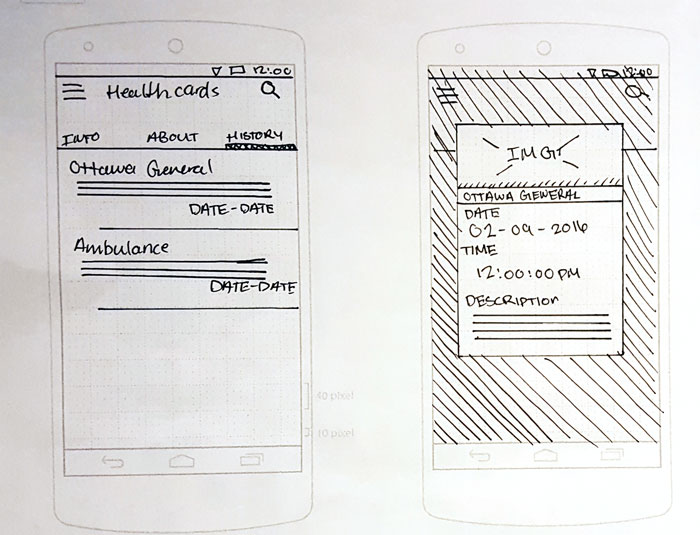 12:00
Healthcards
INFO ABOUT HISTORY
Ottawa General
DATE-DATE
Ambulance
DATE-DATE
40 pixel
10 pixel
12:00
IMG
OTTAWA GENERAL
DATE
02-09-2016
TIME
12:00:00PM
DESCRIPTION